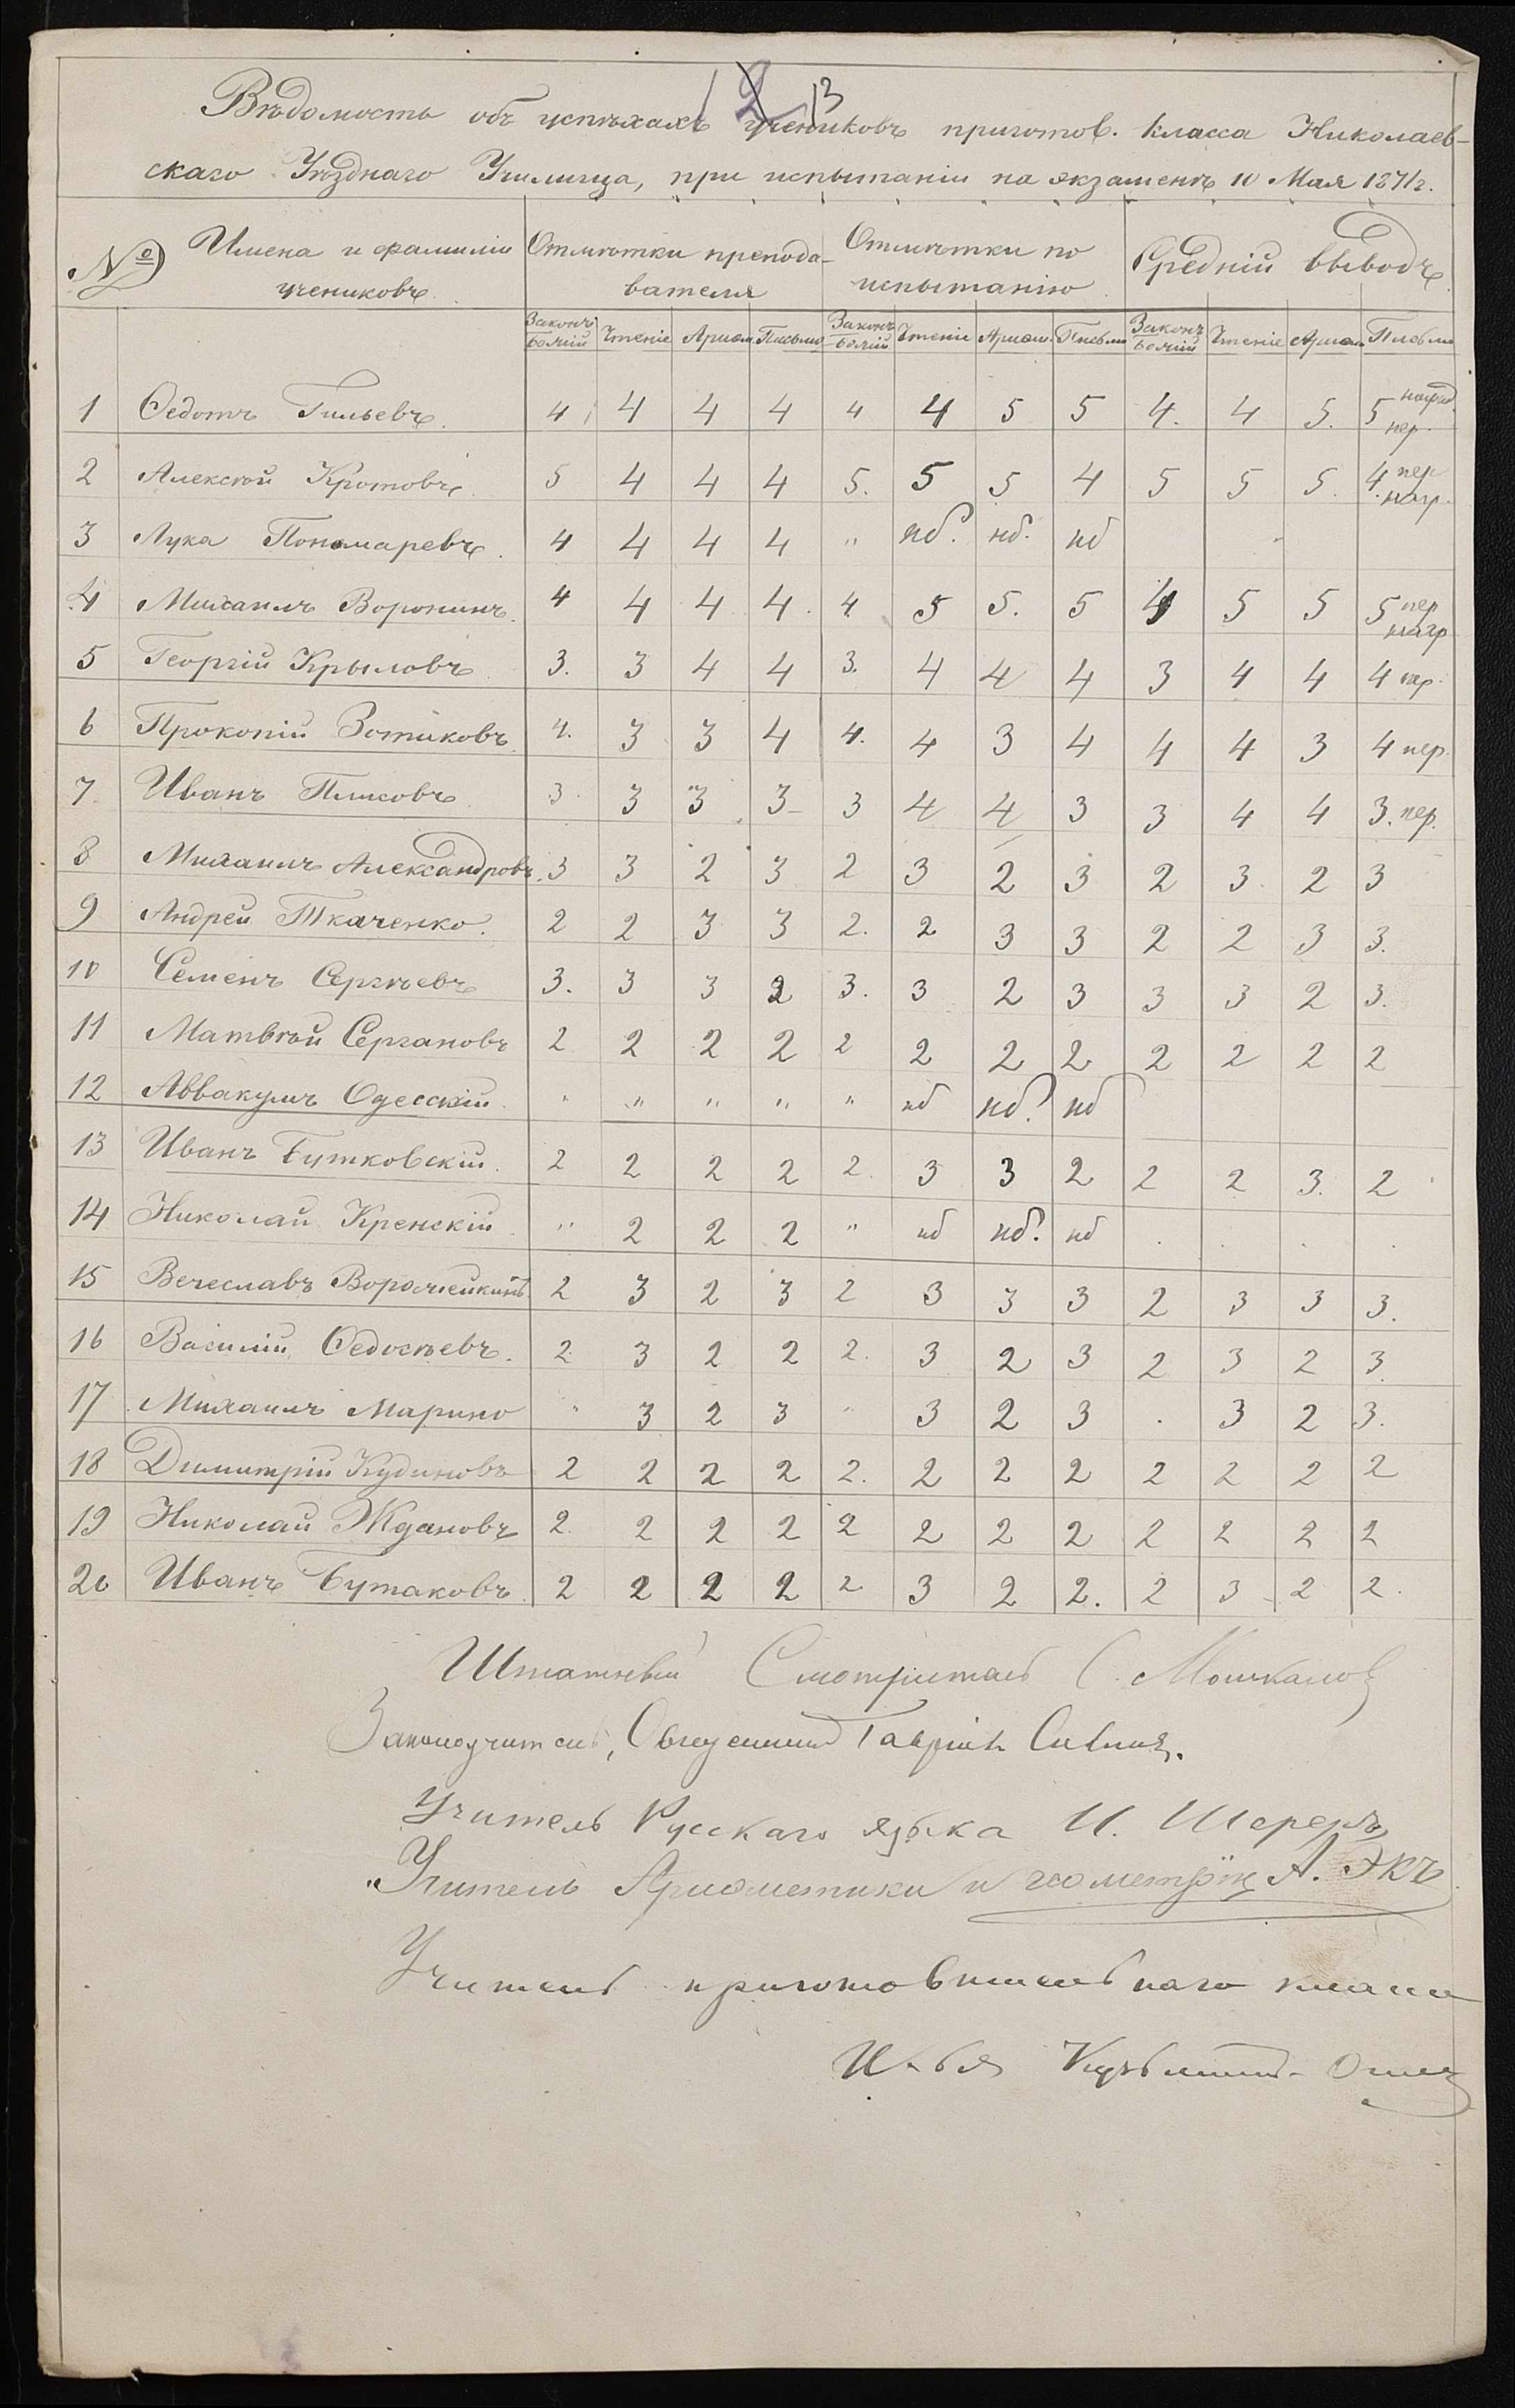 13
Вѣдомость объ успѣхахъ учениковъ приготов. класса Николаев-
скаго Уѣзднаго Училища, при испытаніи на экзаменѣ 10 Мая 1871г.
№ Имена и фамиліи учениковъ Отмѣтки препода-вателя Отмѣтки по испытанію Средній выводъ
Законъ Божій Чтеніе Ариѳм. Письмо Законъ Божій Чтеніе Ариѳм. Письмо Законъ Божій Чтеніе Ариѳм Письмо
1 Ѳедотъ Гильевъ 4 4 4 4 4 4 5 5 4. 4 5. 5 нагрд. пер.
2 Алексѣй Кротовъ 5 4 4 4 5. 5 5 4 5 5 5. 4. пер нагр.
3 Лука Пономаревъ 4 4 4 4 " нб. нб. нб
4 Михаилъ Воронинъ 4 4 4 4. 4. 5 5. 5 4 5 5 5 пер нагр
5 Георгій Крыловъ 3. 3 4 4 3. 4 4 4 3 4 4 4 пер.
6 Прокопій Зотиковъ 4. 3 3 4 4. 4 3 4 4 4 3 4 пер.
7 Иванъ 3 3 3 3 3 4 4 3 3 4 4 3. пер.
8 Михаилъ Александровъ 3 3 2 3 2 3 2 3 2 3 2 3
9 Андрей Ткаченко. 2 2 3 3 2. 2 3 3 2 2 3 3.
10 Семенъ Сергѣевъ 3. 3 3 2 3. 3 2 3 3 3 2 3.
11 Матвѣй Сергановъ 2 2 2 2 2 2 2 2 2 2 2 2
12 Аввакумъ Одесскій " " " " " нб нб. нб
13 Иванъ Бутковскій. 2 2 2 2 2. 3 3 2 2 2 3. 2
14 Николай Кренскій " 2 2 2 " нб нб. нб
15 Вечеславъ Ворожейкинъ 2 3 2 3 2 3 3 3 2 3 3 3.
16 Василій Ѳедосѣевъ. 2 3 2 2 2. 3 2 3 2 3 2 3.
17 Михаилъ Марино " 3 2 3 " 3 2 3 . 3 2 3.
18 Димитрій Кудиновъ 2 2 2 2 2. 2 2 2 2 2 2 2
19 Николай Ждановъ 2 2 2 2 2 2 2 2 2 2 2 2
20 Иванъ Бутаковъ 2 2 2 2 2 3 2 2. 2 3 2 2.
Штатный Смотритель С. Мошкалов
Законоучитель, Священникъ Гавріилъ
Учитель Русскаго языка И. Шереръ
Учитель Ариѳметики и геометріи А. Экъ
Учитель приготовительнаго класса
Илья Кузьминъ-